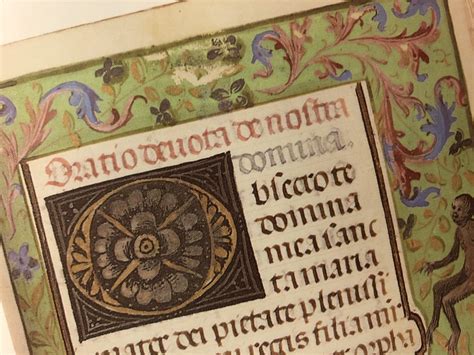 Oratio deuota de nostra
domina.
bsecro te
domina
mea sanc
ta maria
mater dei pietate plenissi
regis filia m
orpha